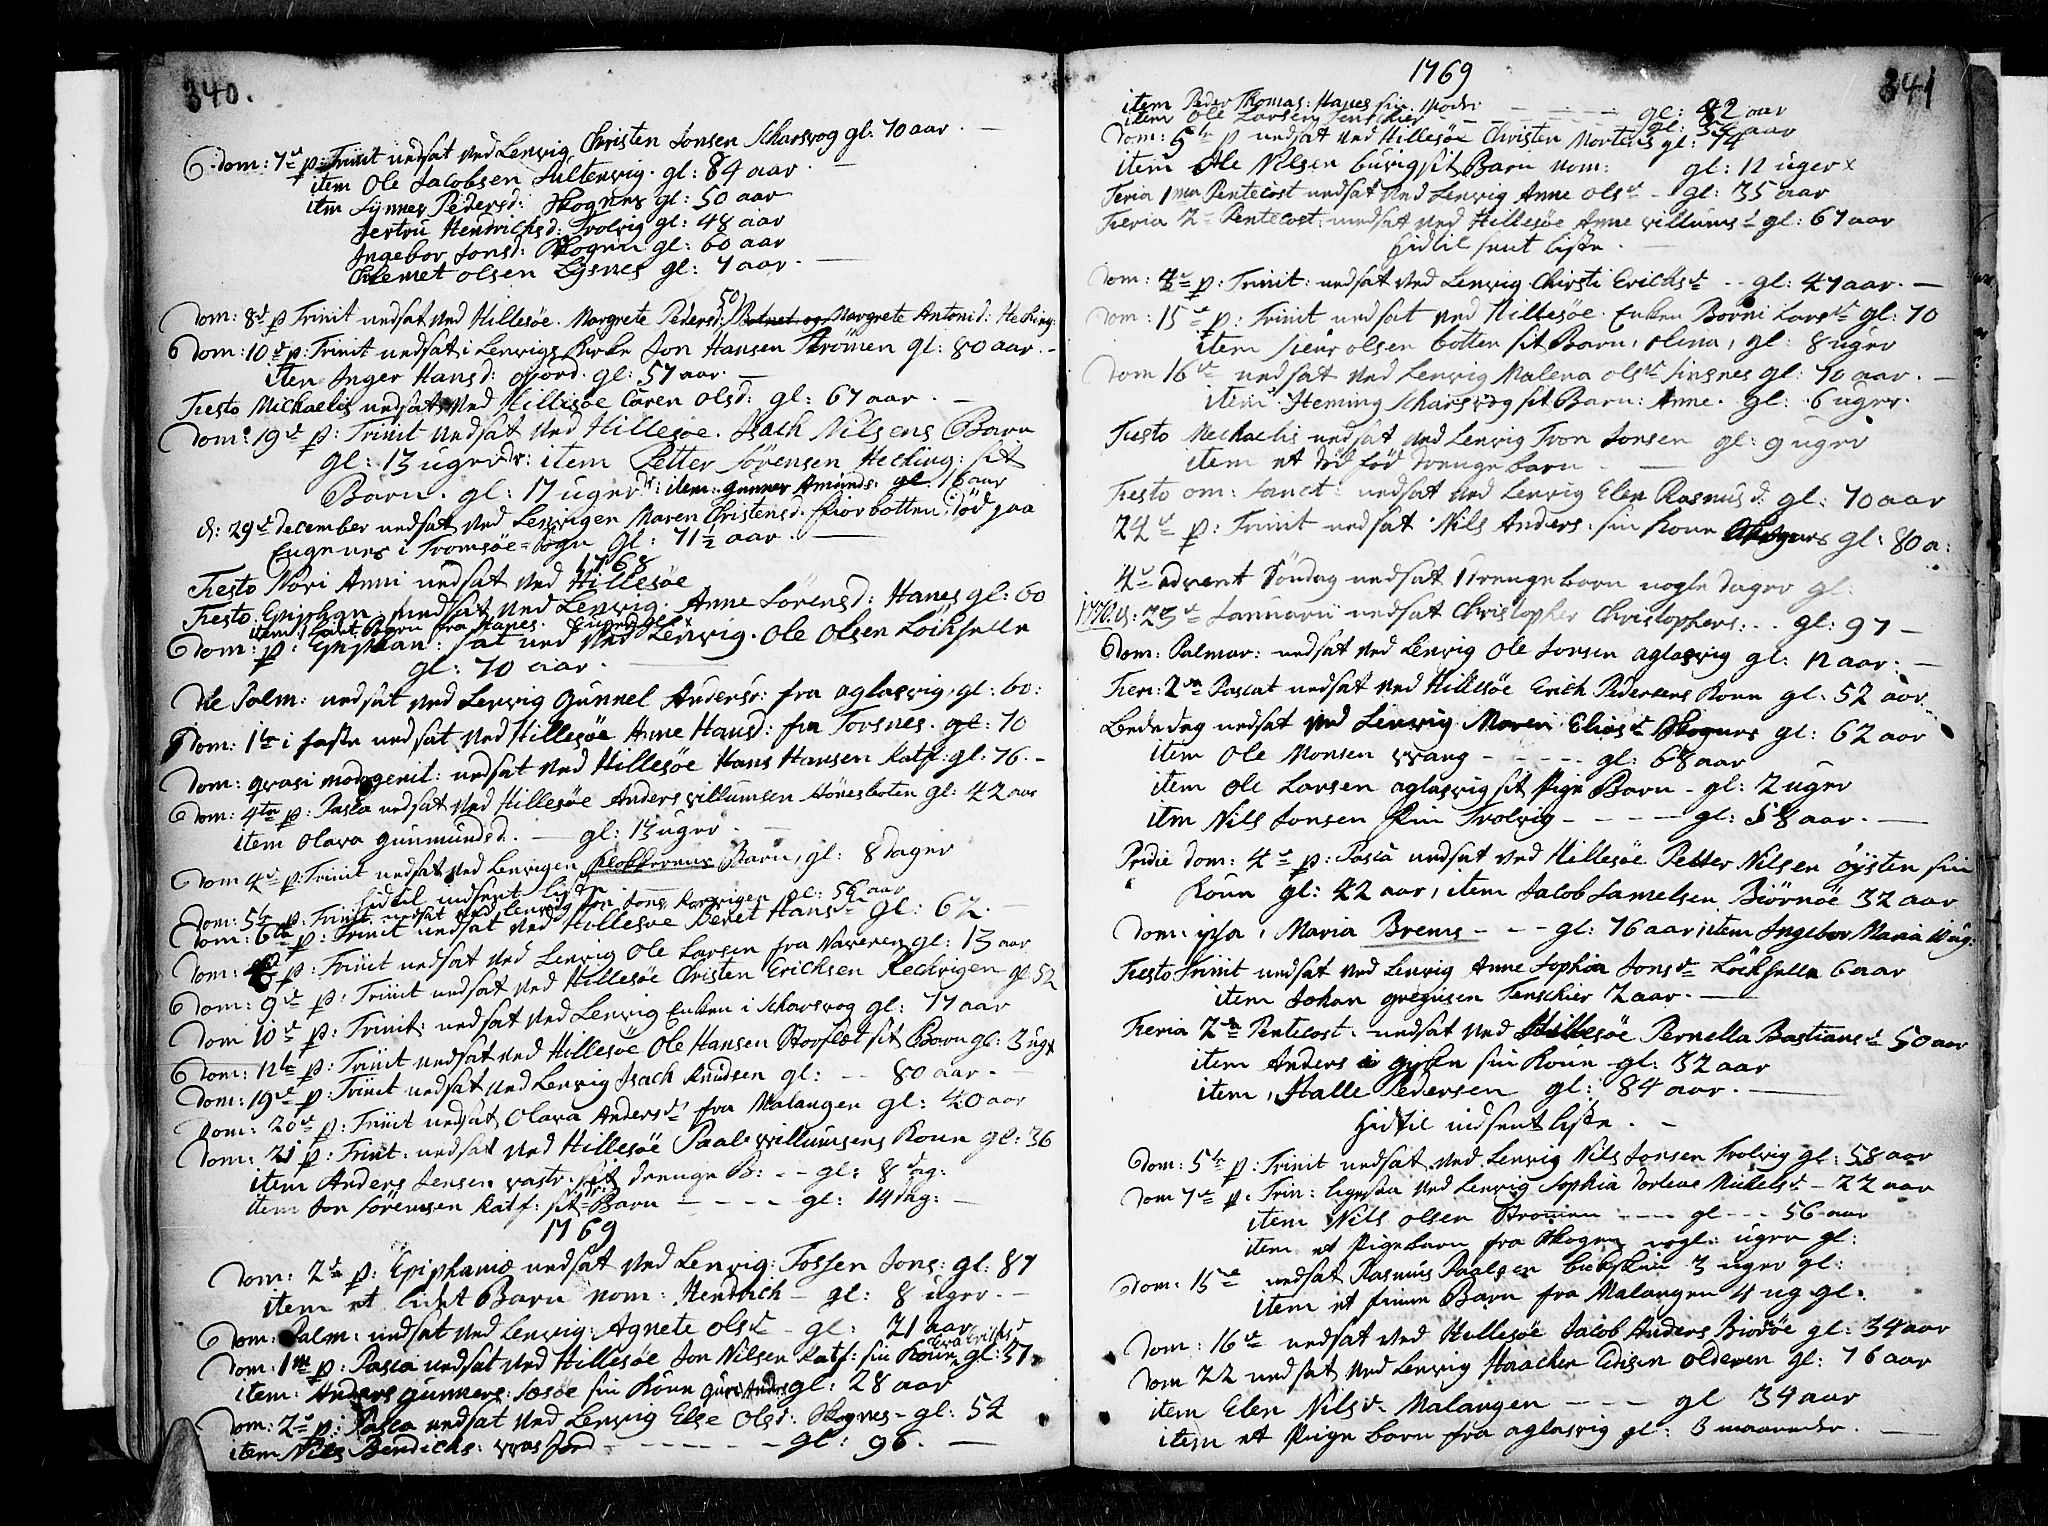 340.
Dom: 7de p: Trinit nedsat ved Lenvig Christen Jonsen Scharsvog gl: 70 aar. —
item Ole Jacobsen Sultenvig. gl: 84 aar. —
item Synnev Pedersd: Skognes gl: 50 aar
Jertru Hendrichsd: Trolvig gl: 48 aar
Ingebor Jonsd: Skognes gl: 60 aar
Clemet Olsen Lysnes gl: 7 aar. —
Dom: 8de p Trinit nedsat ved Hillesöe. Margrete Pedersd: 50 Botnet og Margrete Antonid: Heking:
Dom: 10de p: Trinit nedsat i Lenvigs Kirke Jon Hansen Strömen gl: 80 aar. —
item Inger Hansd: gl: 57 aar. —
Festo Michaelis nedsat ved Hillesöe Caren Olsd: gl: 67 aar. —
Dom: 19de p: Trinit nedsat ved Hillesöe. Isach Nilsens Barn
gl: 13 uger: item Petter Sörensen Hecking: sit
Barn. gl: 17 uger: item: Gunner Amunds: gl: 16 aar
d: 29de December nedsat ved Lenvigen Maren Christensd. Fiorbotten, död paa
i Tromsöe Sogn gl: 71½ aar. —
1768
Festo Novi Anni nedsat ved Hillesöe
Festo Epiphan: nedsat ved Lenvig. Anne Sörensd: Hanes gl: 60
item Barn fra Hanes.
Dom: p: Epiphan: sat ned ved Lenvig. Ole Olsen Löcksella
gl: 70 aar. —
Palm: nedsat ved Lenvig Gunnel Andersd: fra Aglasvig, gl: 60:
Dom: 1te i faste nedsat ved Hillesöe Anne Hansd: fra Torsnes. gl: 70
Dom: qvasi modogenit: nedsat ved Hillesöe Hans Hansen Katf: gl: 76. —
Dom: 4ta p: Pasca nedsat ved Hillesöe Anders Willumsen Hönesboten gl: 42 aar
item Olava Gunmundsd. — gl: 13 uger. —
Dom 4de p: Trinit nedsat ved Lenvigen Klokkerens Barn, gl: 8 dager
hidtil indsent liste
Dom: 5te p: Trinit nedsat ved Lenvig Jon Jons gl: 56 aar
Dom: 6te p: Trinit nedsat ved Hillesöe Beret Hansdr gl: 62. —
Dom: p: Trinit nedsat ved Lenvig Ole Larsen fra Naveren gl: 13 aar
Dom: 9de p: Trinit nedsat ved Hillesöe Christen Erichsen Rechvigen gl: 52
Dom 10de p: Trinit: nedsat ved Lenvig Enken i Scharsvog gl: 77 aar
Dom: 12te p: Trinit nedsat ved Hillesöe Ole Hansen Storslet sit Barn gl: 3 ug
Dom: 19de p: Trinit nedsat ved Lenvig Isach Knudsen gl: - - 80 aar. —
Dom: 20de p: Trinit nedsat Olava Andersd: fra Malangen gl: 40 aar
Dom: 21 p: Trinit: nedsat ved Hillesöe Paale Willumsens Kone gl: 36
item Anders Jensen sit drenge B: - - gl: 8 dag:
item Jon Sörensen Katf: sit Barn - - - - gl: 14 dag: —
1769
Dom: 2de p: Epiphaniæ nedsat ved Lenvig: Tosten Jons: gl: 87
item et lidet Barn nom: Hendrich — gl: 8 uger. —
Dom: Palm: nedsat ved Lenvig: Agnete Olsdr - gl: 21 aar
Dom: 1me p: Pasca nedsat ved Hillesöe Jon Nilsen Katf: sin Kone gl: 57.
item: Anders Gunners: sin Kone gl: 28 aar
Dom: 2de p: Pasca nedsat ved Lenvig Else Olsd: Skognes - gl: 54
item Nils Bendichs: - - - - - - gl: 96. —
1769
341
item Peder Thomas: Hanes sin Moder - - - - - gl: 82 aar
item Ole Larsen - - - gl: aar
Dom: 5te p nedsat ved Hillesöe Christen Mortens gl: 74
item Ole Nilsen sit Barn nom: gl: 12 uger
Feria 1ma Pentecost nedsat ved Lenvig Anne Olsdr - gl: 35 aar
Feria 2de Pentecost: nedsat ved Hillesöe Anne Willumsd gl: 67 aar
Hidtil sent liste. —
Dom: p: Trinit: nedsat ved Lenvig Christi Erichsdr - - gl: 47 aar. —
Dom: 15de p: Trinit nedsat ved Hillesöe. Enken Borni Larsdr gl: 70
item Siur Olsen botten sit Barn, Olena, gl: 8 uger
Dom 16de nedsat ved Lenvig Malena Olsdr Finsnes gl: 70 aar. —
item Heming Scharsvog sit Barn: Anne. gl: 6 uger.
Festo Mechaelis nedsat ved Lenvig Jonsen gl: 9 uger
item et död föd drenge barn. —
Festo om: Sanct: nedsat ved Lenvig Elen Rasmusd. gl: 70 aar
24de p: Trinit nedsat Nils Anders: sin Kone gl: 80 a:
4de Advent Söndag nedsat 1 drenge barn nogle dager gl:
1770. d: 23de Januarii nedsat Christopher Christophers: - - gl: 97 —
Dom: Palmar: nedsat ved Lenvig Ole Jonsen Aglasvig gl: 12 aar. —
Fer: 2da Pascat nedsat ved Hillesöe Erich Pedersens Kone gl: 52 aar
Bededag nedsat ved Lenvig Maren Eliasdr Skognes gl: 62 aar
item Ole Monsen Wang - - - - - gl: 68 aar
item Ole Larsen Aglasvig sit Pige Barn - gl: 2 uger
item Nils Jonsen Fin Trolvig - - - - - gl: 58 aar. —
Pridie Dom: 4de p: Pasca nedsat ved Hillesöe Petter Nilsen Öysten sin
Kone gl: 42 aar, item Jacob Samelsen Biörnöe 32 aar
Dom: ipsa, Maria Brems - - - gl: 76 aar, item Ingebor Maria
Festo Trinit nedsat ved Lenvig Anne Sophia Jonsdr Löcksella 6 aar
item Johan Gregusen Tenschier 2 aar. —
Feria 2da Pentecost: nedsat ved Hillesöe Pernella Bastiansdr 50 aar
item Anders sin Kone gl: 32 aar
item, Halle Pedersen gl: 84 aar. —
Hidtil indsent liste. —
Dom: 5te p: Trinit nedsat ved Lenvig Nils Jonsen Trolvig gl: 58 aar
Dom 7de p: Trin: ligesaa ved Lenvig Sophia Dorlene Mickelsdr - 22 aar
item Nils Olsen Strömen - - - gl - - - 56 aar
item et Pigebarn fra Skogen nogl: uger gl:
Dom: 15de nedsat Rasmus Paalsen 3 uger gl:
item et finne Barn fra Malangen 11 ug. gl.
Dom: 16de nedsat ved Hillesöe Jacob Anders Biöröe gl: 34 aar
Dom 22 nedsat ved Lenvig Haacken Edisen Olderen gl: 76 aar
item Elen Nilsdr Malangen - - - gl 34 aar
item et Pige barn fra Aglasvig gl: 3 maaneder. —